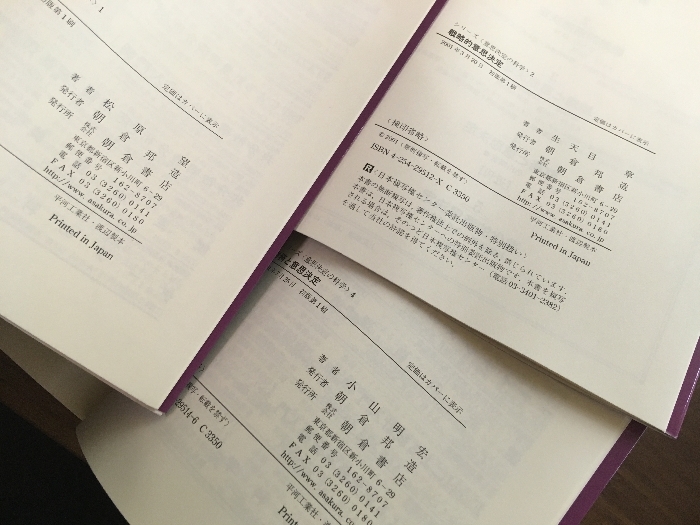 〉1
版第1刷
定価はカバーに表示
著者 松原 望
発行者 朝倉邦造
発行所 株式会社 朝倉書店
東京都新宿区新小川町6-29
郵便番号 162-8707
電話 03(3260)0141
FAX 03(3260)0180
http://www.asakura.co.jp
平河工業社・渡辺製本
Printed in Japan
シリーズ〈意思決定の科学〉2
戦略的意思決定
定価はカバーに表示
著者 生天目 章
発行者 朝倉邦造
発行所 株式会社 朝倉書店
東京都新宿区新小川町6-29
郵便番号 162-8707
電話 03(3260)0141
FAX 03(3260)0180
http://www.asakura.co.jp
〈検印省略〉
©2001〈無断複写・転載を禁ず〉
平河工業社・渡辺製本
ISBN 4-254-29512-X C3350
Printed in Japan
R〈日本複写権センター委託出版物・特別扱い〉
本書の無断複写は,著作権法上での例外を除き,禁じられています.
本書は,日本複写権センターへの特別委託出版物です.本書を複写
される場合は,そのつど日本複写権センター(電話03-3401-2382)
を通して当社の許諾を得てください.
ズ〈意思決定の科学〉4
と意思決定
初版第1刷
定価はカバーに表示
著者 小山明宏
発行者 朝倉邦造
発行所 株式会社 朝倉書店
東京都新宿区新小川町6-29
郵便番号 162-8707
電話 03(3260)0141
FAX 03(3260)0180
http://www.asakura.co.jp
複写・転載を禁ず〉
平河工業社・
29514-6 C3350
Printed